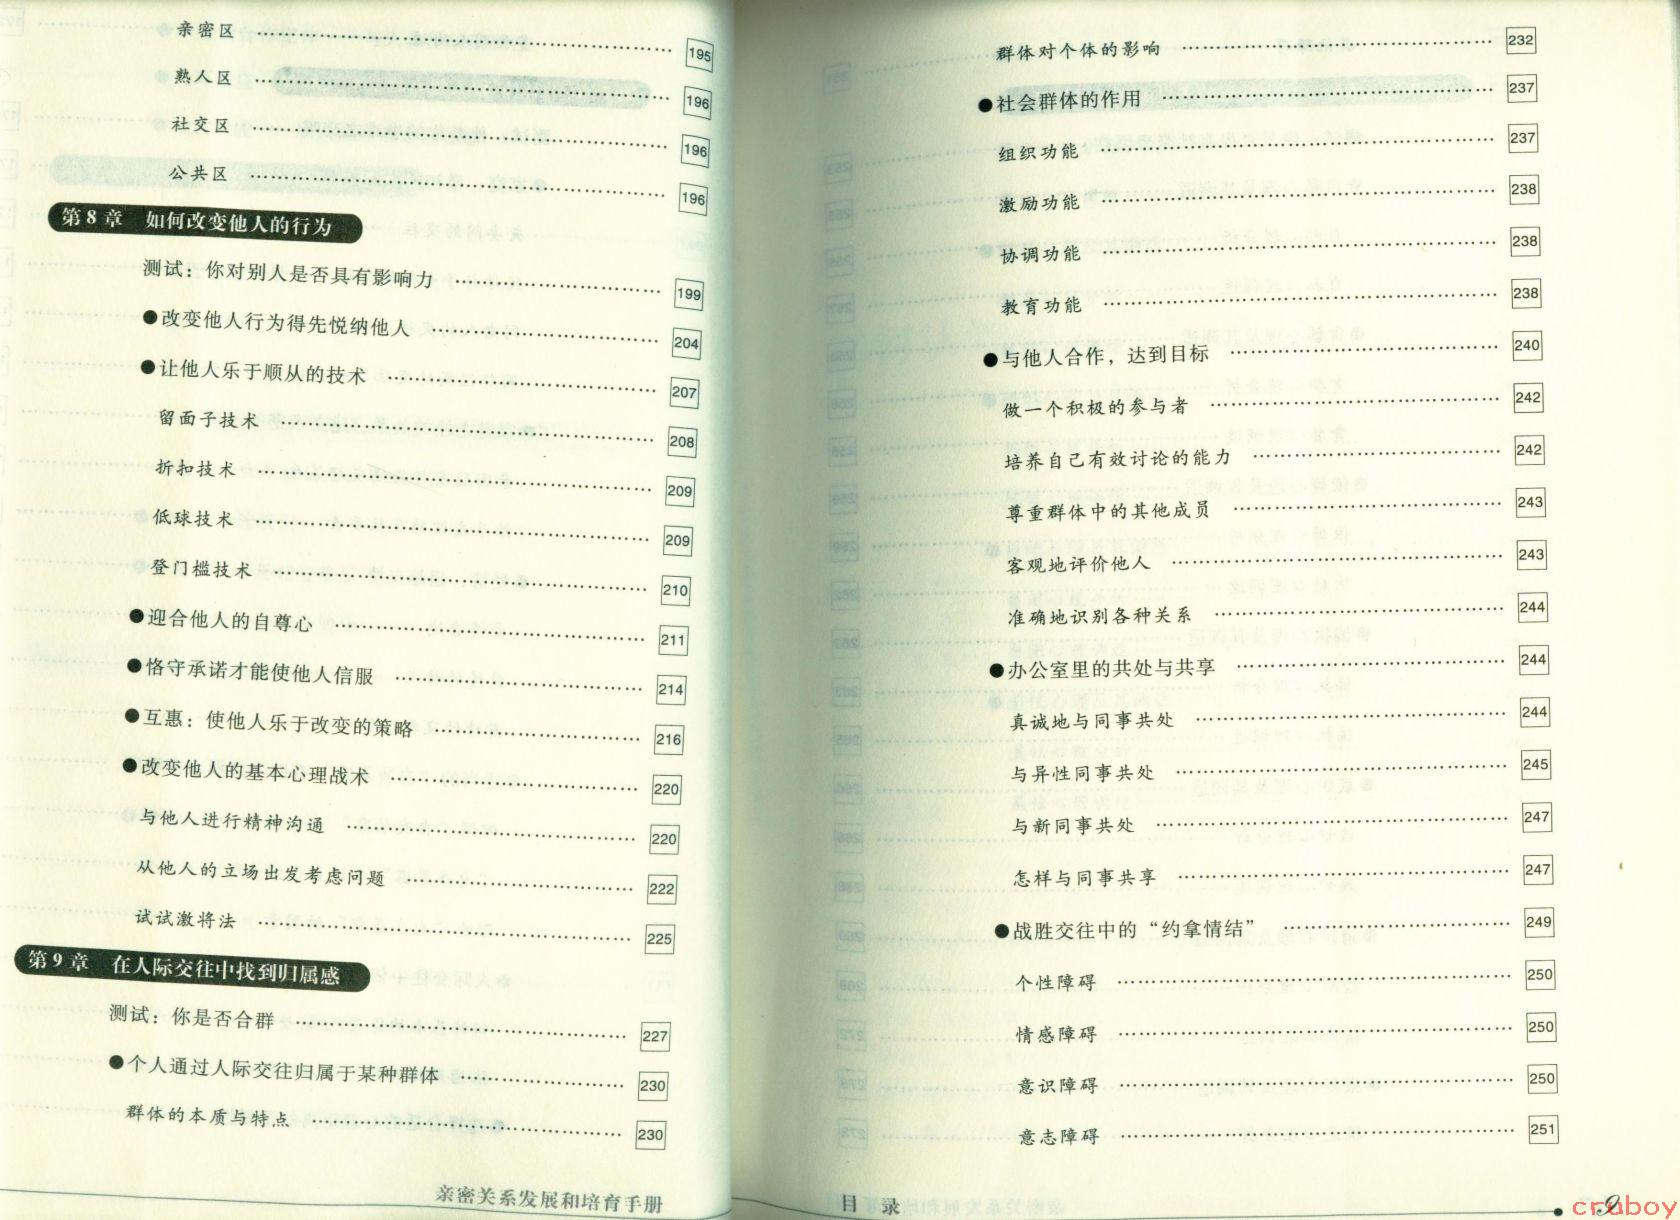 亲密区 195
熟人区 196
社交区 196
公共区 196
第8章 如何改变他人的行为
测试：你对别人是否具有影响力 199
●改变他人行为得先悦纳他人 204
●让他人乐于顺从的技术 207
留面子技术 208
折扣技术 209
低球技术 209
登门槛技术 210
●迎合他人的自尊心 211
●恪守承诺才能使他人信服 214
●互惠：使他人乐于改变的策略 216
●改变他人的基本心理战术 220
与他人进行精神沟通 220
从他人的立场出发考虑问题 222
试试激将法 225
第9章 在人际交往中找到归属感
测试：你是否合群 227
●个人通过人际交往归属于某种群体 230
群体的本质与特点 230
亲密关系发展和培育手册
群体对个体的影响 232
●社会群体的作用 237
组织功能 237
激励功能 238
协调功能 238
教育功能 238
●与他人合作，达到目标 240
做一个积极的参与者 242
培养自己有效讨论的能力 242
尊重群体中的其他成员 243
客观地评价他人 243
准确地识别各种关系 244
●办公室里的共处与共享 244
真诚地与同事共处 244
与异性同事共处 245
与新同事共处 247
怎样与同事共享 247
●战胜交往中的“约拿情结” 249
个性障碍 250
情感障碍 250
意识障碍 250
意志障碍 251
目录 9
craboy